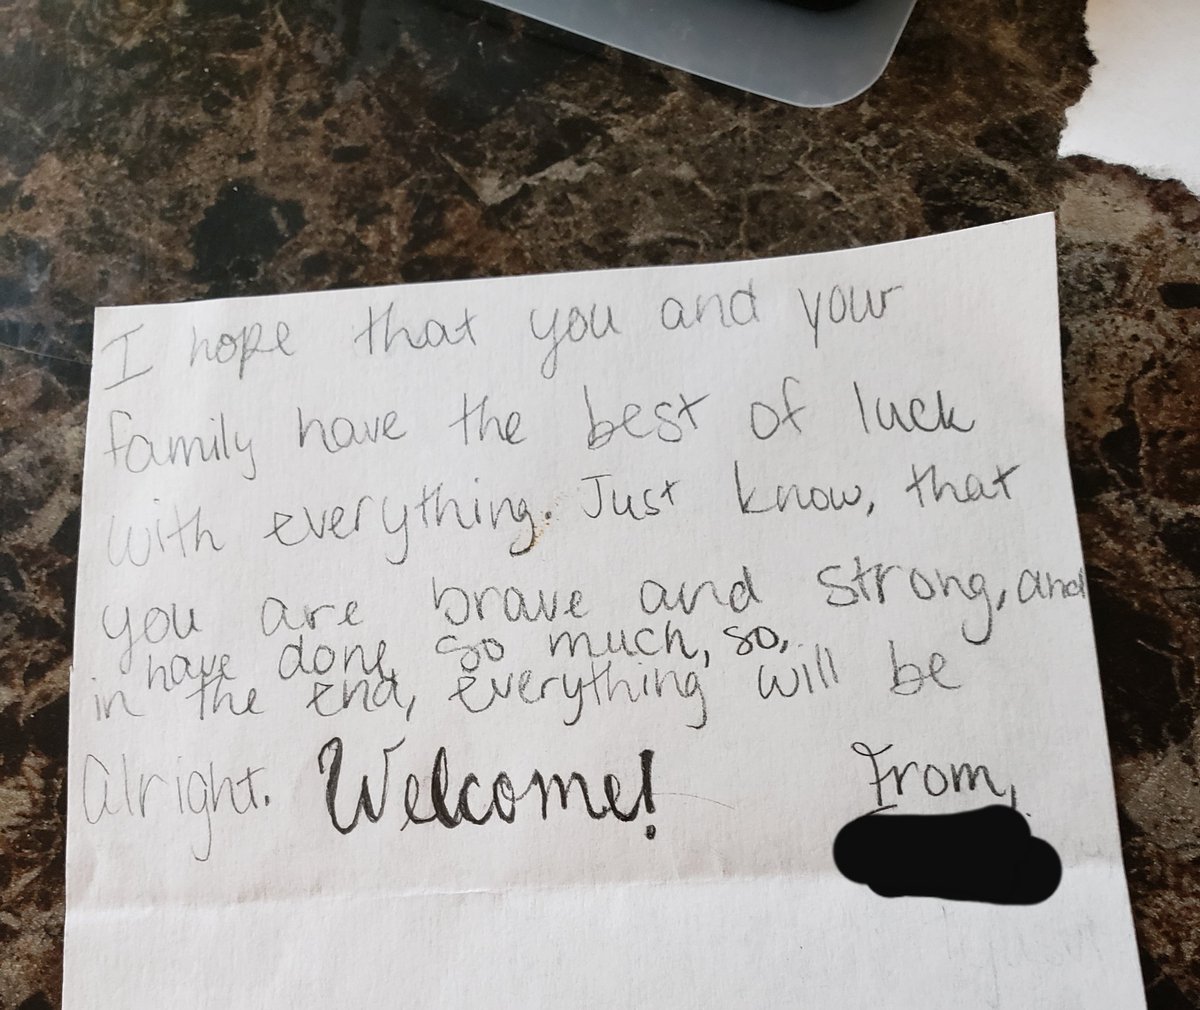 I hope that you and your
family have the best of luck
with everything. Just know, that
you are brave and strong, and
have done so much, so,
in the end, everything will be
Alright. Welcome! From,